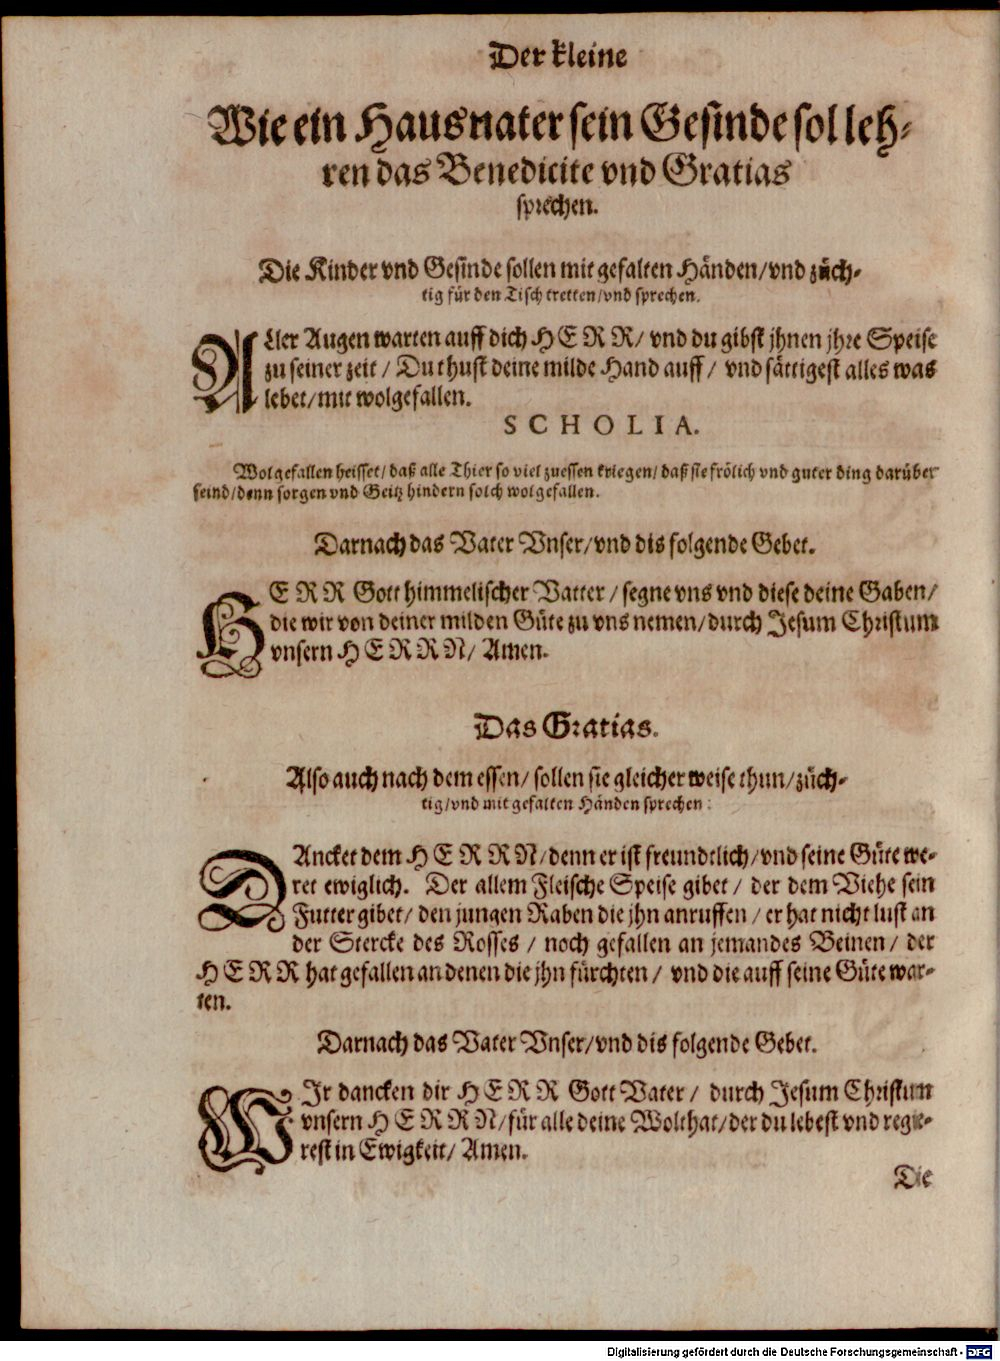 Der kleine
Wie ein Hausuater sein Gesinde sol leh-
ren das Benedicite vnd Gratias
sprechen.
Die Kinder vnd Gesinde sollen mit gefalten Händen/vnd züch-
tig für den Tisch tretten/vnd sprechen.
ALler Augen warten auff dich HERR/ vnd du gibst jhnen jhre Speise
zu seiner zeit / Du thust deine milde Hand auff / vnd sättigest alles was
lebet/mit wolgefallen.
SCHOLIA.
Wolgefallen heisset/ daß alle Thier so viel zuessen kriegen/ daß sie frölich vnd guter ding darüber
seind/denn sorgen vnd Geitz hindern solch wolgefallen.
Darnach das Vater Vnser/vnd dis folgende Gebet.
HERR Gott himmelischer Vatter / segne vns vnd diese deine Gaben/
die wir von deiner milden Güte zu vns nemen/durch Jesum Christum
vnsern HERRN/ Amen.
Das Gratias.
Also auch nach dem essen/ sollen sie gleicher weise thun/züch-
tig/vnd mit gefalten Händen sprechen:
DAncket dem HERRN/denn er ist freundtlich/vnd seine Güte we-
ret ewiglich. Der allem Fleische Speise gibet / der dem Viehe sein
Futter gibet/ den jungen Raben die jhn anruffen / er hat nicht lust an
der Stercke des Rosses / noch gefallen an jemandes Beinen / der
HERR hat gefallen an denen die jhn fürchten / vnd die auff seine Güte war-
ten.
Darnach das Vater Vnser/vnd dis folgende Gebet.
WIr dancken dir HERR Gott Vater / durch Jesum Christum
vnsern HERRN/für alle deine Wolthat/der du lebest vnd regie-
rest in Ewigkeit/ Amen.
Die
Digitalisierung gefördert durch die Deutsche Forschungsgemeinschaft - DFG